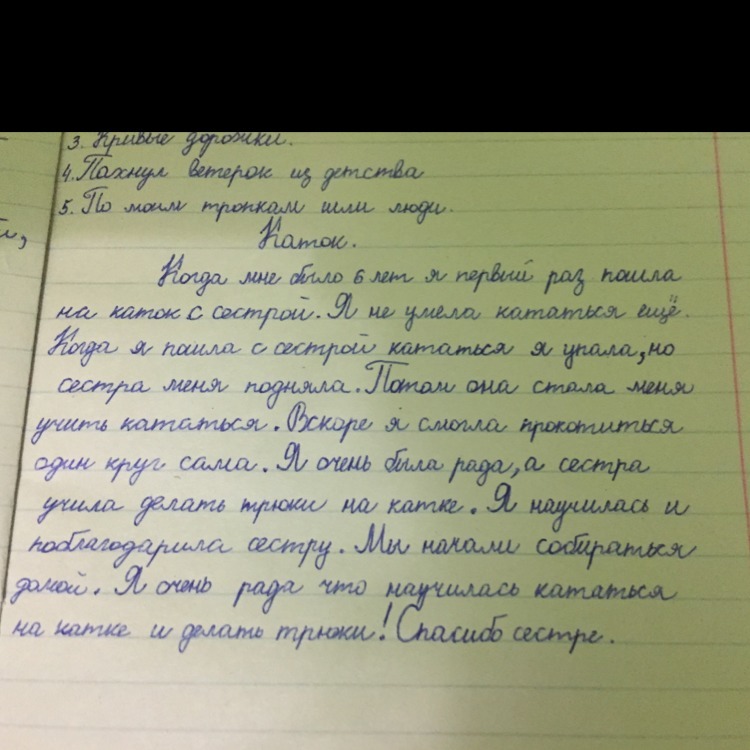 3. Кривые дорожки.
4. Пахнул ветерок из детства
5. По моим тропкам шли люди.
Каток.
Когда мне было 6 лет я первый раз пошла
на каток с сестрой. Я не умела кататься ещё.
Когда я пошла с сестрой кататься я упала, но
сестра меня подняла. Потом она стала меня
учить кататься. Вскоре я смогла прокотиться
один круг сама. Я очень была рада, а сестра
учила делать трюки на катке. Я научилась и
поблагодарила сестру. Мы начали собираться
домой. Я очень рада что научилась кататься
на катке и делать трюки! Спасибо сестре.